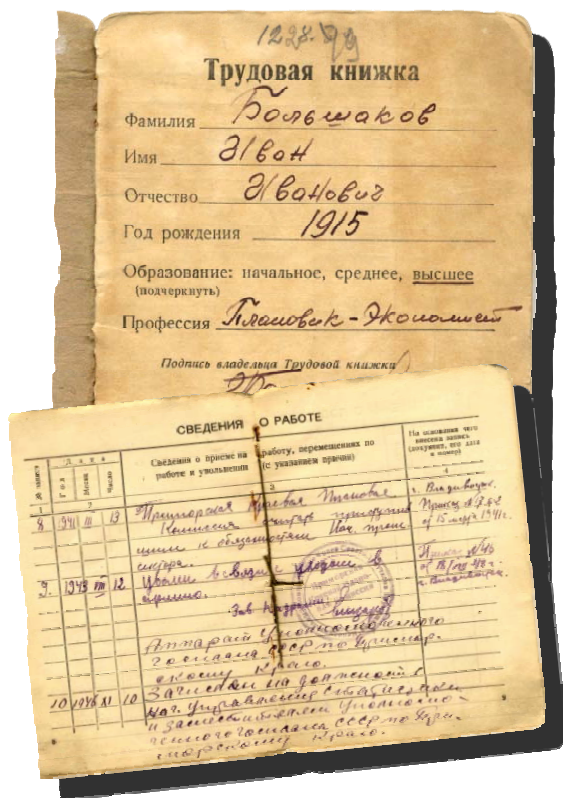 1228.
Трудовая книжка
Фамилия Большаков
Имя Иван
Отчество Иванович
Год рождения 1915
Образование: начальное, среднее, высшее
(подчеркнуть)
Профессия Плановик-Экономист
Подпись владельца Трудовой книжки
СВЕДЕНИЯ О РАБОТЕ
№ записи
Дата
Год
Месяц
Число
Сведения о приеме на работу, перемещениях по
работе и увольнении (с указанием причин)
На основании чего
внесена запись
(документ, его дата
и номер)
1 2 3 4
8 1941 III 13 Приморская Краевая Плановая г. Владивосток.
Комиссия приступив Приказ
шим к обязанностям Нач. пром. от 15 марта 1941г.
сектора.
9. 1943 VIII 12 Уволен в связи с уходом в Приказ №
армию.
Зав. Кадрами г. Владивосток.
Аппарат Уполномоченного
Госплана СССР по Примор.
скому Краю.
10 1946 XI 10 Зачислен на должность
нач. Управления Статистики
и заместителем Уполномо-
ченного Госплана СССР по При-
морскому Краю.